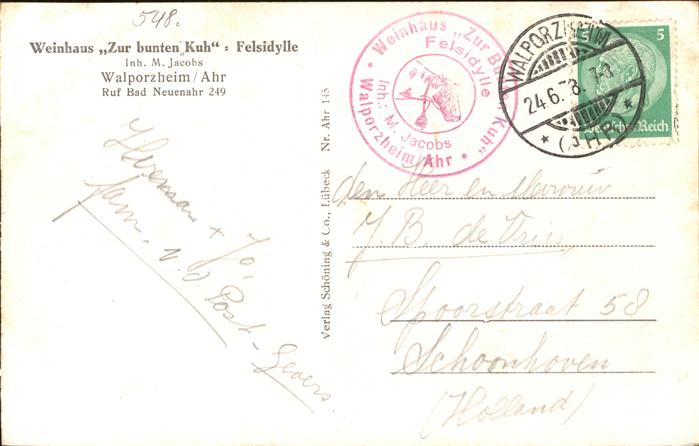 548.
Weinhaus „Zur bunten Kuh" : Felsidylle
Inh. M. Jacobs
Walporzheim/Ahr
Ruf Bad Neuenahr 249
Herman + Jo,
fam. v.d. Post-
Verlag Schöning & Co., Lübeck Nr. Ahr 145
• Weinhaus „Zur Bunten Kuh" •
Felsidylle
Inh. M. Jacobs
Walporzheim/Ahr
WALPORZHEIM
24.6.
(AHR)
5
Deutsches Reich
den Heer en Mevrouw
J. B. de Vries,
Spoorstraat 58
Schoonhoven
(Holland)